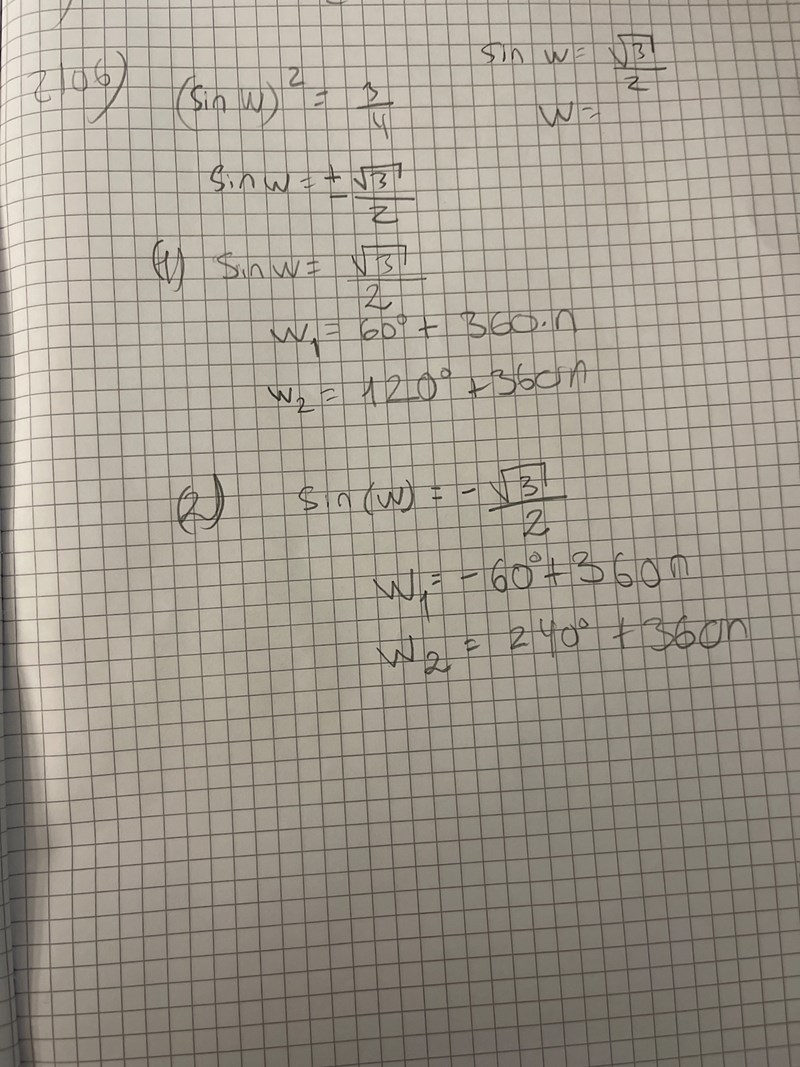 2106) (sin W)² = 3/4
sin W = ±√3/2
(1) sin W = √3/2
W₁ = 60° + 360·n
W₂ = 120° + 360n
(2) sin(W) = -√3/2
W₁ = -60° + 360n
W₂ = 240° + 360n
sin W = √3/2
W =